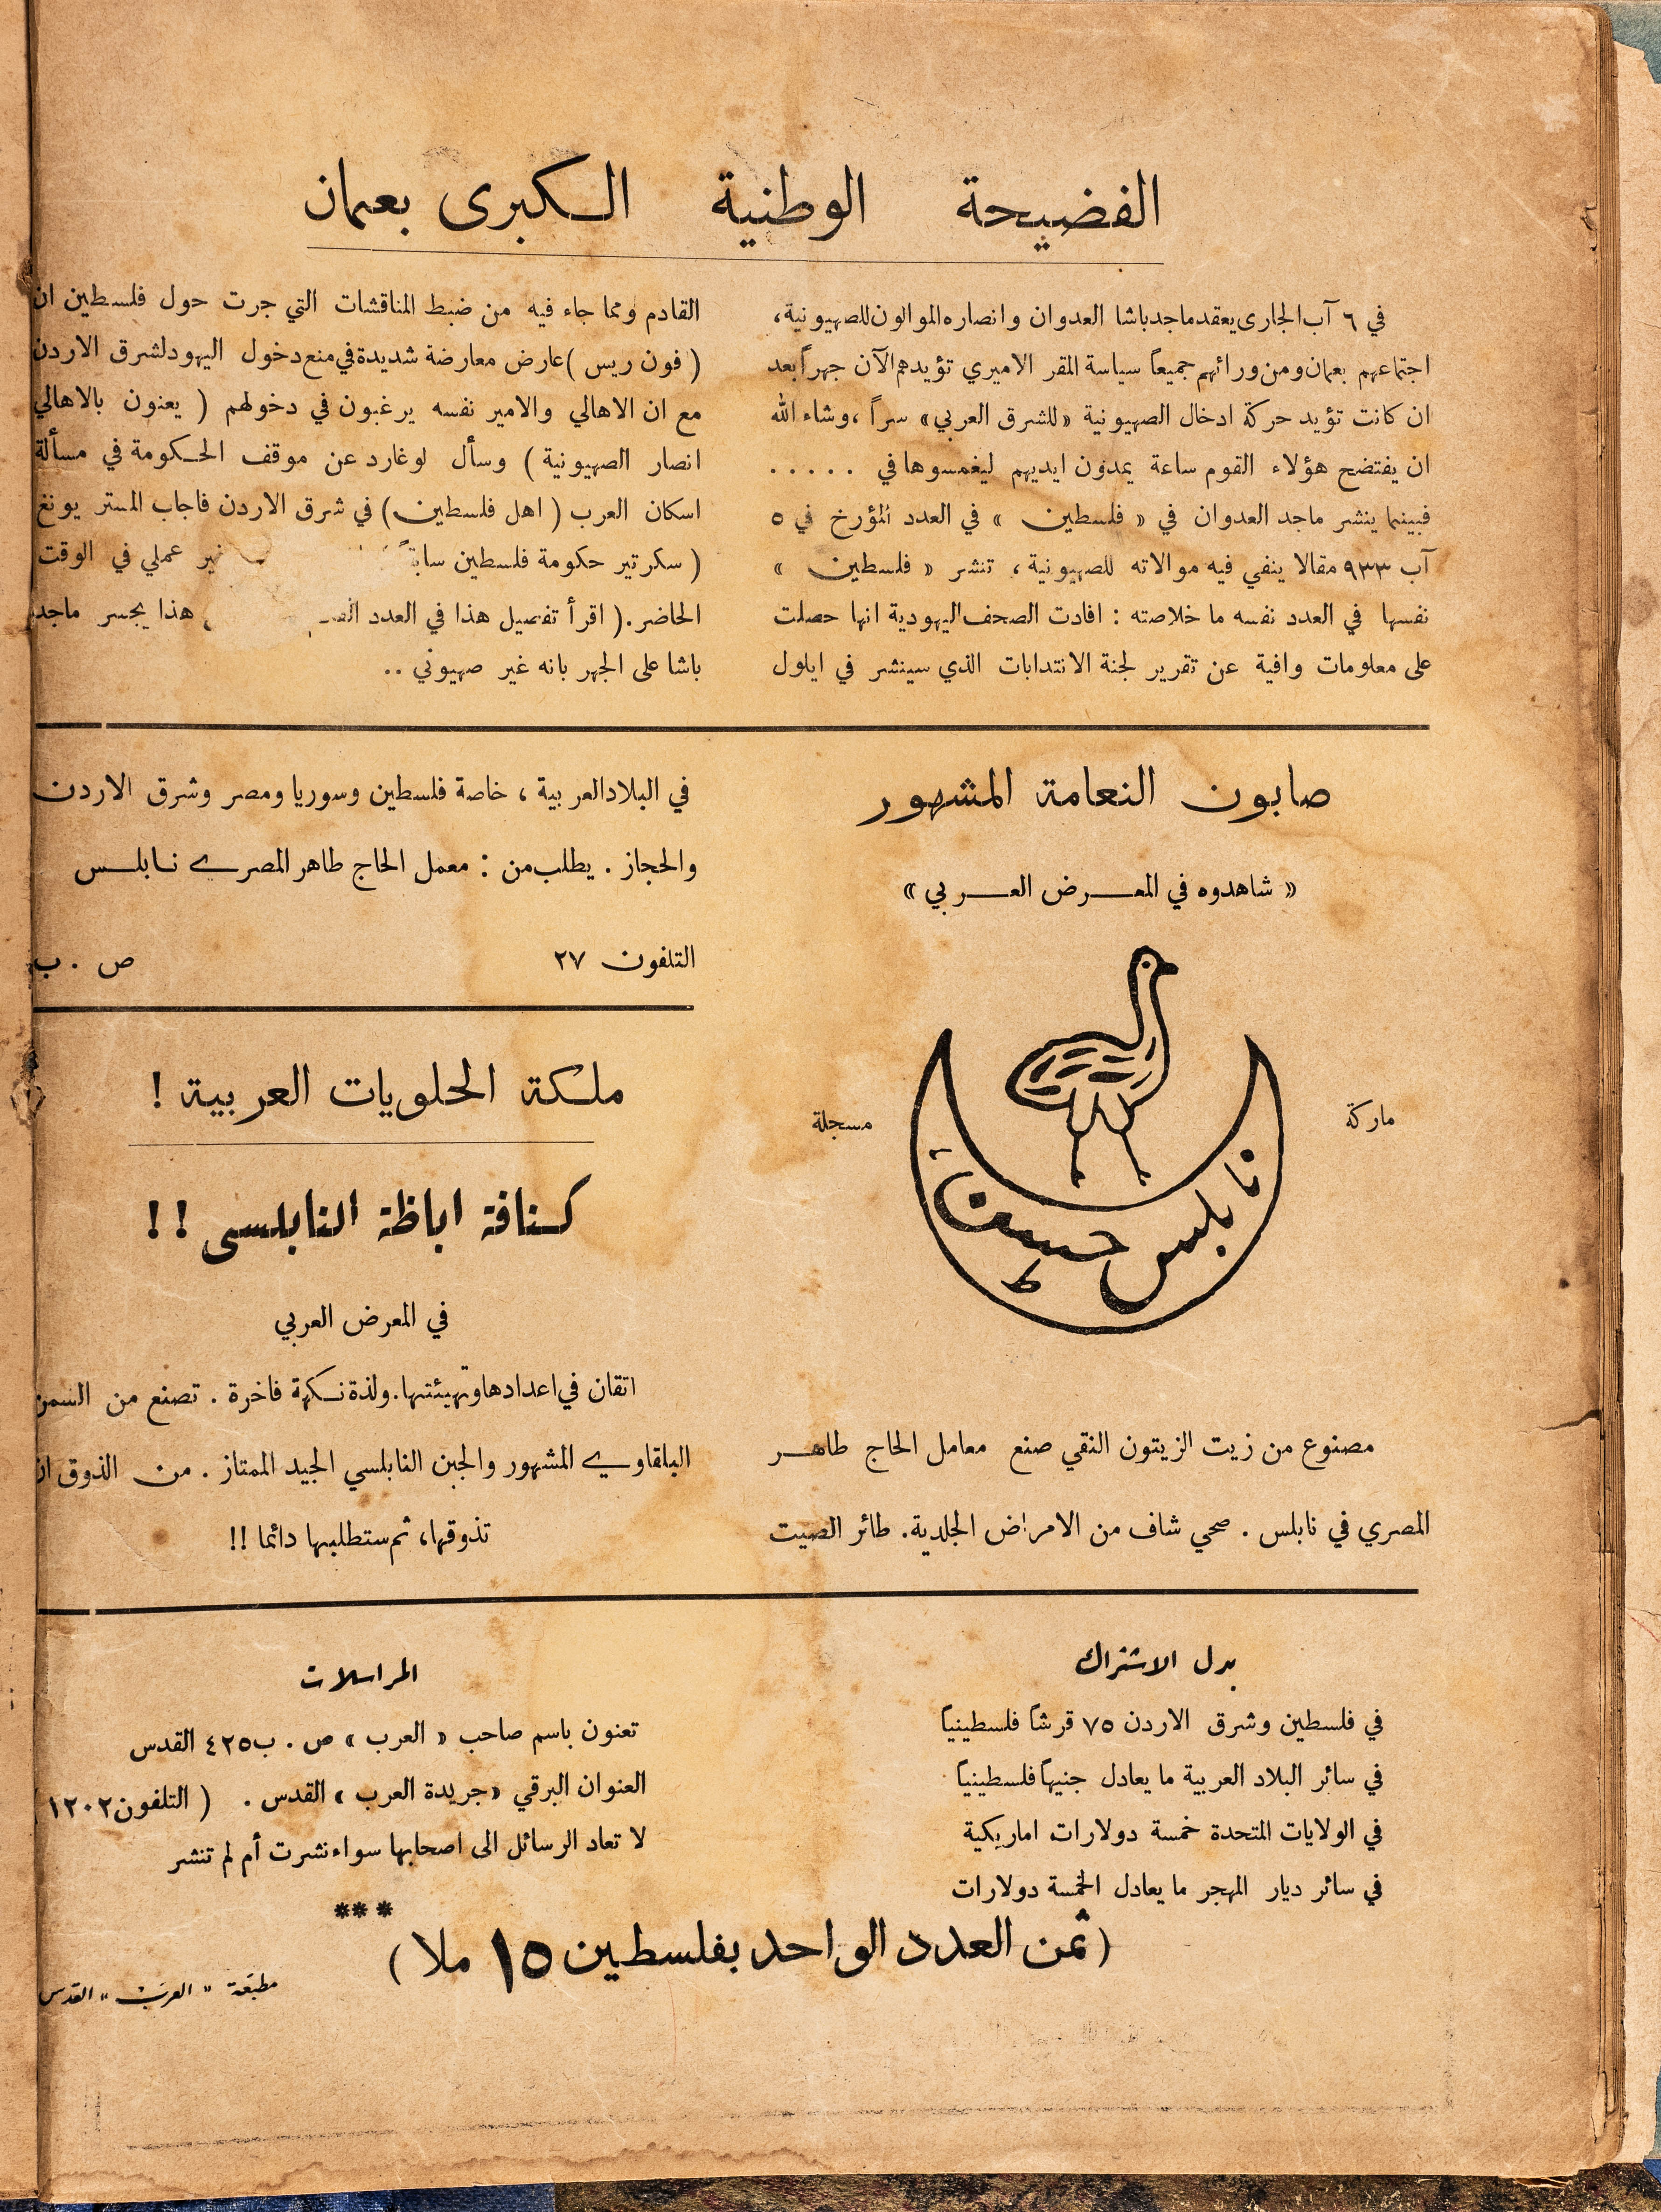 الفضيحة الوطنية الكبرى بعمان
في ٦ آب الجاري يعقد ماجد باشا العدوان وانصاره الموالون للصهيونية،
اجتماعهم بعمان ومن ورائهم جميعاً سياسة المقر الاميري تؤيدهم الآن جهراً بعد
ان كانت تؤيد حركة ادخال الصهيونية «للشرق العربي» سراً ، وشاء الله
ان يفتضح هؤلاء القوم ساعة يمدون ايديهم ليغمسوها في . . . . .
فبينما ينشر ماجد العدوان في « فلسطين » في العدد المؤرخ في ٥
آب ٩٣٣ مقالا ينفي فيه موالاته للصهيونية ، تنشر « فلسطين »
نفسها في العدد نفسه ما خلاصته : افادت الصحف اليهودية انها حصلت
على معلومات وافية عن تقرير لجنة الانتدابات الذي سينشر في ايلول
القادم ومما جاء فيه من ضبط المناقشات التي جرت حول فلسطين ان
( فون ريس ) عارض معارضة شديدة في منع دخول اليهود لشرق الاردن
مع ان الاهالي والامير نفسه يرغبون في دخولهم ( يعنون بالاهالي
انصار الصهيونية ) وسأل لوغارد عن موقف الحكومة في مسألة
اسكان العرب ( اهل فلسطين ) في شرق الاردن فاجاب المستر يونغ
( سكرتير حكومة فلسطين عملي في الوقت
الحاضر . ( اقرأ تفصيل هذا في العدد هذا يجسر ماجد
باشا على الجهر بانه غير صهيوني ..
صابون النعامة المشهور
« شاهدوه في المعرض العربي »
ماركة
مسجلة
نابلس حسن
مصنوع من زيت الزيتون النقي صنع معامل الحاج طاهر
المصري في نابلس . صحي شاف من الامراض الجلدية . طائر الصيت
في البلاد العربية ، خاصة فلسطين وسوريا ومصر وشرق الاردن
والحجاز . يطلب من : معمل الحاج طاهر المصري نابلس
التلفون ٢٧ ص . ب
ملكة الحلويات العربية !
كنافة اباظة النابلسي !!
في المعرض العربي
اتقان في اعدادها وتهيئتها . ولذة نكهة فاخرة . تصنع من السمن
البلقاوي المشهور والجبن النابلسي الجيد الممتاز . من الذوق ان
تذوقها ، ثم ستطلبها دائما !!
بدل الاشتراك
في فلسطين وشرق الاردن ٧٥ قرشاً فلسطينياً
في سائر البلاد العربية ما يعادل جنيهاً فلسطينياً
في الولايات المتحدة خمسة دولارات اماريكية
في سائر ديار المهجر ما يعادل الخمسة دولارات
المراسلات
تعنون باسم صاحب « العرب » ص . ب ٤٢٥ القدس
العنوان البرقي «جريدة العرب» القدس . ( التلفون ١٢٠٢
لا تعاد الرسائل الى اصحابها سواء نشرت أم لم تنشر
***
( ثمن العدد الواحد بفلسطين ١٥ ملا )
مطبعة « العرب » القدس